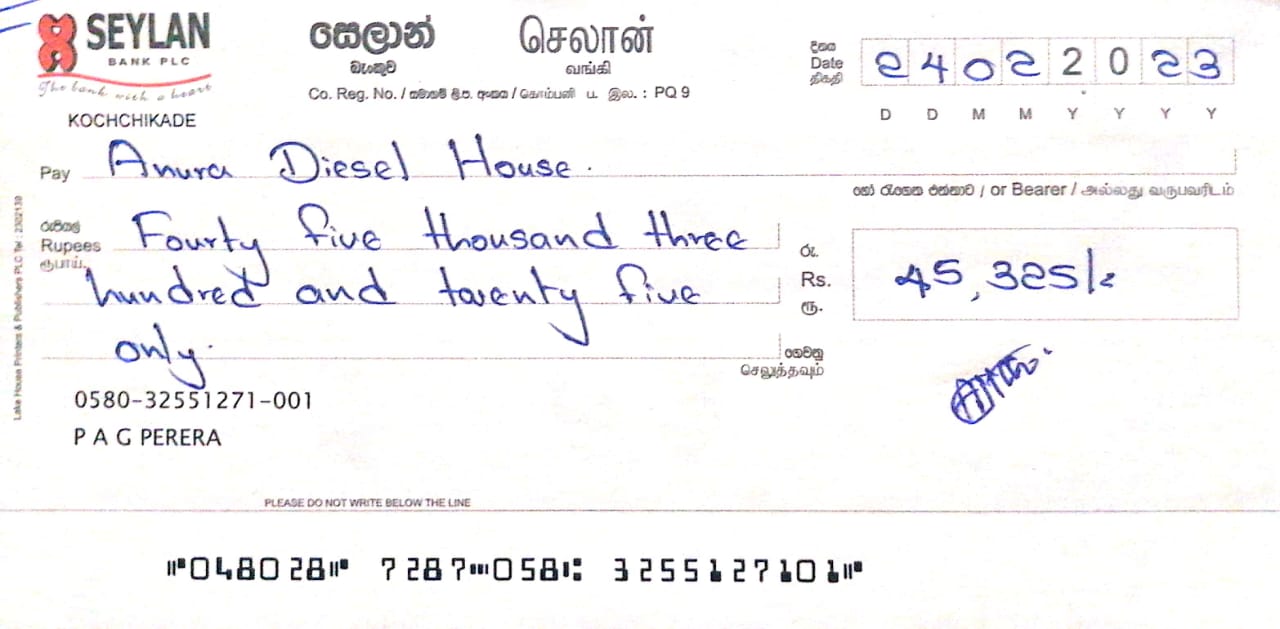 SEYLAN
BANK PLC
The bank with a heart
KOCHCHIKADE
සෙලාන් செலான்
බැංකුව வங்கி
Co. Reg. No. / සමාගම් ලි.ප. අංකය / கொம்பனி ப. இல. : PQ 9
දිනය
Date
திகதி
2 4 0 2 2 0 2 3
D D M M Y Y Y Y
Pay Anura Diesel House.
හෝ රැගෙන එන්නාට / or Bearer / அல்லது வருபவரிடம்
රුපියල්
Rupees
ரூபாய்
Fourty five thousand three
hundred and twenty five
only.
රු.
Rs.
ரூ.
45,325/=
ගෙවනු
செலுத்தவும்
0580-32551271-001
P A G PERERA
Lake House Printers & Publishers PLC Tel : 2302139
PLEASE DO NOT WRITE BELOW THE LINE
⑈048028⑈ 7287⑉058⑆ 3255127101⑈